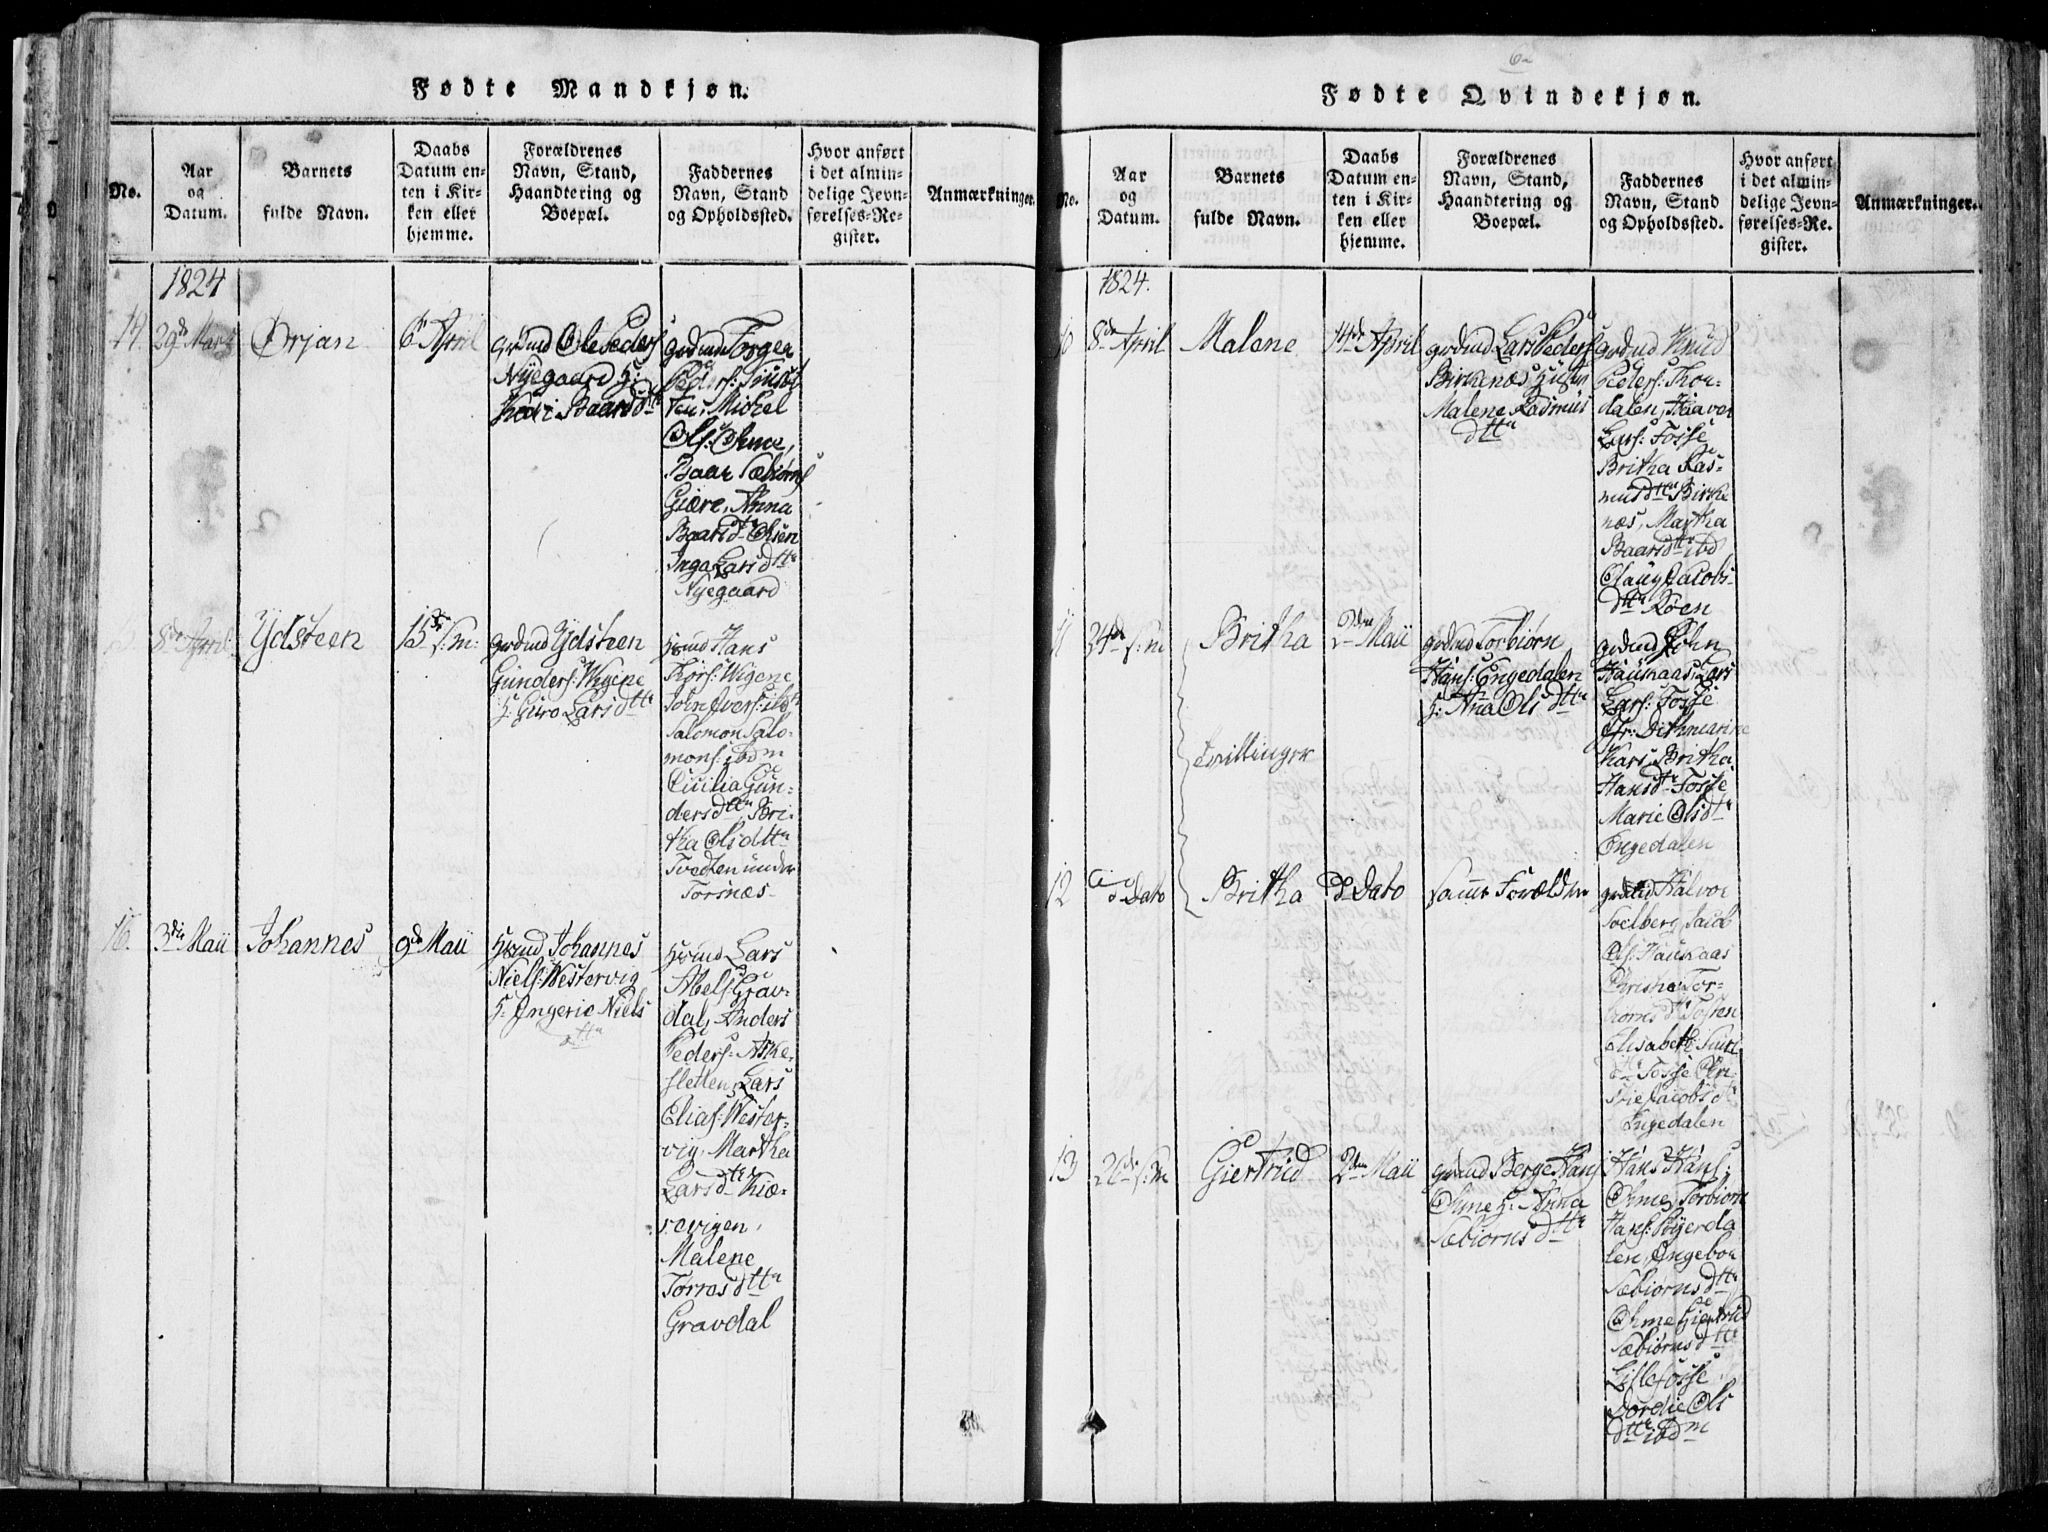 Fødte Mandkjøn.
No.
Aar
og
Datum.
Barnets
fulde Navn.
Daabs
Datum en-
ten i Kir-
ken eller
hjemme.
Forældrenes
Navn, Stand,
Haandtering og
Boepæl.
Faddernes
Navn, Stand
og Opholdssted.
Hvor anført
i det almin-
delige Jevn-
førelses-Re-
gister.
Anmærkninger.
1824
14.
29de Marts
Ørjan
6te April
grdmd Ole Peders:
Nÿegaard H:
Kari Baardsdtt
Torger
Peders:
Michel
Ols: Øhme,
Baar Sæbiørns
Giære, Anna
Baarsdtt Øhsen
Inga Larsdttr
Nÿegaard
8de April
Ydsteen
15de s:m:
grdmd Ydsteen
Gunders: Wigene
H: Guro Larsdttr
Hans
Wigene
John Ivers: ibdm
Salomon Salo-
mons: ibdm
Cicilia Gun-
dersdttr, Bri-
tha Olsdttr
Tvedten under
Torsnæs
16.
3die Maii
Johannes
9de Maii
Johannes
Niels: Westervig
H: Ingerie Niels
dttr
Lars
Abels: Grav-
dal, Anders
Peders: Aske-
sletten, Lars
Elias: Wester-
vig, Martha
Larsdttr Kiæ-
revigen,
Malene
Torrasdttr
Gravdal
Fødte Qvindekjøn.
No.
Aar
og
Datum.
Barnets
fulde Navn.
Daabs
Datum en-
ten i Kir-
ken eller
hjemme.
Forældrenes
Navn, Stand,
Haandtering og
Boepæl.
Faddernes
Navn, Stand
og Opholdssted.
Hvor anført
i det almin-
delige Jevn-
førelses-Re-
gister.
Anmærkninger.
1824.
10
8de April
Malene
14de April
grdmd Lars Peders:
Birkenæs Hustru
Malene Rasmus
dttr
grdmd Knud
Peders: Thon-
dalen, Haaver
Lars: Fosse
Britha Ras-
musdttr Birke
næs, Martha
Baarsdttr ibd
Olaug Jacobs-
dttr Røen
11
24de s:m
Britha
2den Maii
grdmd Torbiørn
Hans: Engedalen
H: Ana Olsdttr
grdmd John
Haukaas, Lars
Lars: Fosse
Jfr: Dithmarine
Kars, Britha
Hansdtr Fosse
Marie Olsdtr
Engedalen
Tvillinger
12
d: Dato
Britha
d: Dato
samme Forældre
grdmd Halvor
Solberg, Jacob
Ols: Haukaas
Christie Tor-
biørnsdtr Fossen
Elisabeth
Fosse
Jacobsdtr
Engedalen
13
26de s:m
Giertrud
2den Maii
grdmd Berge Hans
Øhme H: Anna
Sæbiørnsdttr
Hans Hans:
Øhme, Torbiørn
Hans:
Ingebor
Sæbiørnsdttr
Øhme, Giertrud
Sæbiørnsdttr
Lillefosse,
Dordie Ols
dttr ibdm